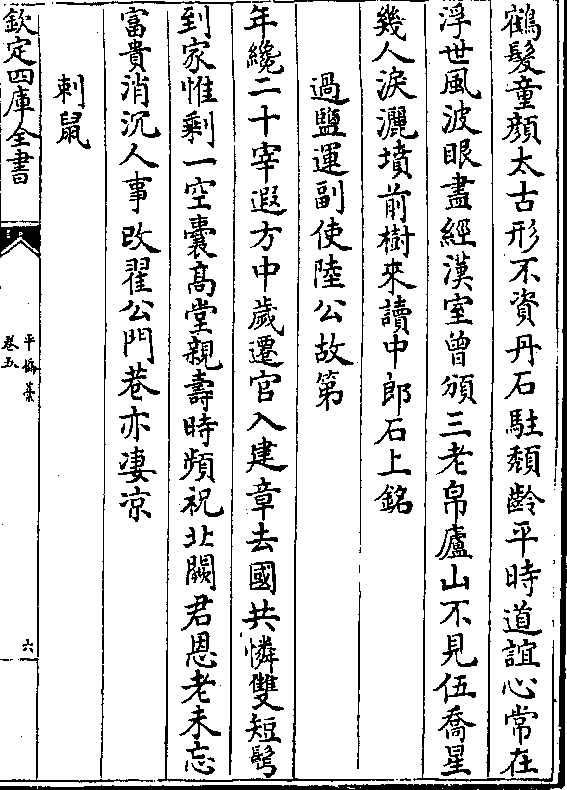 鶴髮童顔太古形不資丹石駐頽齡平時道誼心常在
浮世風波眼盡經漢室曾頒三老帛廬山不見伍喬星
幾人淚灑墳前樹來讀中郎石上銘
過鹽運副使陸公故第
年纔二十宰遐方中歲遷官入建章去國共憐雙短鬢
到家惟剩一空囊高堂親壽時頻祝北闕君恩老未忘
富貴消沉人事改翟公門巷亦凄凉
刺鼠
欽定四庫全書
平橋藁
卷五
六